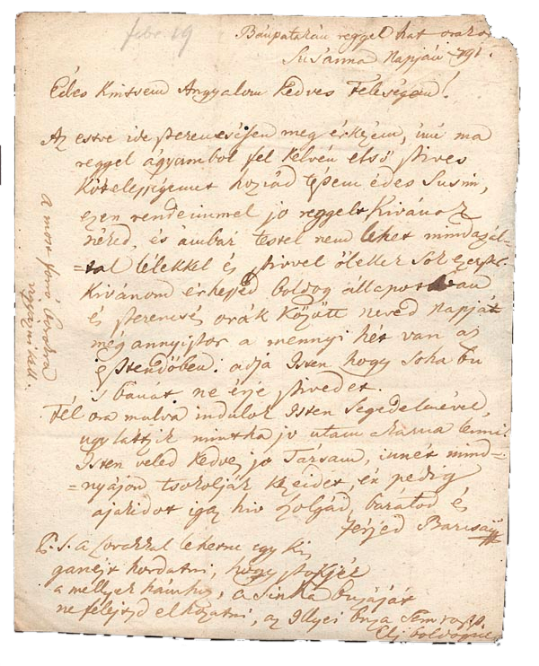 febr. 19
Bánpatakán reggel hat orakor
Susánna Napján 791.
Édes Kintsem Angyalom Kedves Feleségem!
Az estve ide szerencsésen meg érkezém, ma
reggel ágyamból fel kelvén első szives
Kötelességemet hozád tészem édes Susim,
ezen rendeimmel jo reggelt Kivánok
néked, és ámbár testel nem lehet mindazál-
=tal lélekkel és szivvel ölellek Sok ezerszer
Kivánom érhessed boldog állapotban
és szerencsés orák Között neved Napját
még annyiszor a mennyi hét van az
Esztendőben: adja Isten hogy Soha bu
s bánát ne érje szivedet.
Fél ora mulva indulok Isten Segedelmével,
ugy láttzik mintha jo utam akarna lenni.
Isten veled Kedves jo Társam, innét mind=
=nyájon tsokolják Kezeidet, én pedig
ajakidot igaz hiv szolgád, barátod és
férjed Barcsay
P. S. a lovakkal lehetne egy kis
ganéjt hordatni, hogy szokjék
a méllyek hámhoz, a Sinka buzáját
ne felejtsd el hozatni, az Illyei buza Sem rosz.
Élj boldogul
a most